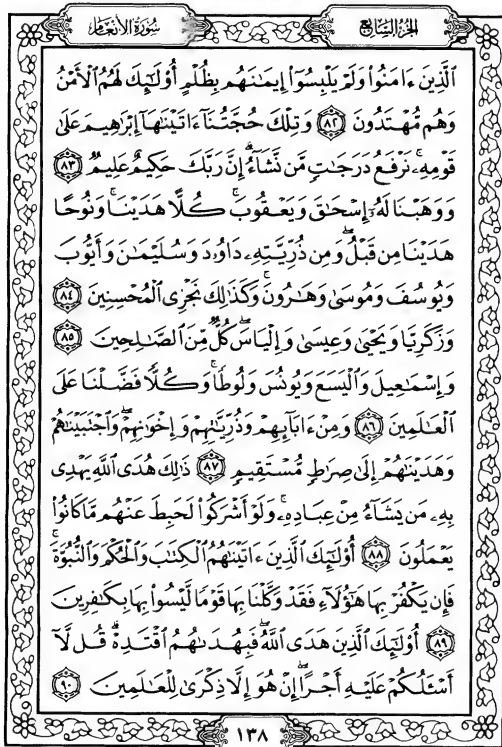 سُورَةُ الأَنْعَام
الجُزْءُ السَّابِع
ٱلَّذِينَ ءَامَنُوا۟ وَلَمْ يَلْبِسُوٓا۟ إِيمَٰنَهُم بِظُلْمٍ أُو۟لَٰٓئِكَ لَهُمُ ٱلْأَمْنُ
وَهُم مُّهْتَدُونَ ٨٢ وَتِلْكَ حُجَّتُنَآ ءَاتَيْنَٰهَآ إِبْرَٰهِيمَ عَلَىٰ
قَوْمِهِۦ ۚ نَرْفَعُ دَرَجَٰتٍ مَّن نَّشَآءُ ۗ إِنَّ رَبَّكَ حَكِيمٌ عَلِيمٌ ٨٣
وَوَهَبْنَا لَهُۥٓ إِسْحَٰقَ وَيَعْقُوبَ ۚ كُلًّا هَدَيْنَا ۚ وَنُوحًا
هَدَيْنَا مِن قَبْلُ ۖ وَمِن ذُرِّيَّتِهِۦ دَاوُۥدَ وَسُلَيْمَٰنَ وَأَيُّوبَ
وَيُوسُفَ وَمُوسَىٰ وَهَٰرُونَ ۚ وَكَذَٰلِكَ نَجْزِى ٱلْمُحْسِنِينَ ٨٤
وَزَكَرِيَّا وَيَحْيَىٰ وَعِيسَىٰ وَإِلْيَاسَ ۖ كُلٌّ مِّنَ ٱلصَّٰلِحِينَ ٨٥
وَإِسْمَٰعِيلَ وَٱلْيَسَعَ وَيُونُسَ وَلُوطًا ۚ وَكُلًّا فَضَّلْنَا عَلَى
ٱلْعَٰلَمِينَ ٨٦ وَمِنْ ءَابَآئِهِمْ وَذُرِّيَّٰتِهِمْ وَإِخْوَٰنِهِمْ ۖ وَٱجْتَبَيْنَٰهُمْ
وَهَدَيْنَٰهُمْ إِلَىٰ صِرَٰطٍ مُّسْتَقِيمٍ ٨٧ ذَٰلِكَ هُدَى ٱللَّهِ يَهْدِى
بِهِۦ مَن يَشَآءُ مِنْ عِبَادِهِۦ ۚ وَلَوْ أَشْرَكُوا۟ لَحَبِطَ عَنْهُم مَّا كَانُوا۟
يَعْمَلُونَ ٨٨ أُو۟لَٰٓئِكَ ٱلَّذِينَ ءَاتَيْنَٰهُمُ ٱلْكِتَٰبَ وَٱلْحُكْمَ وَٱلنُّبُوَّةَ ۚ
فَإِن يَكْفُرْ بِهَا هَٰٓؤُلَآءِ فَقَدْ وَكَّلْنَا بِهَا قَوْمًا لَّيْسُوا۟ بِهَا بِكَٰفِرِينَ
٨٩ أُو۟لَٰٓئِكَ ٱلَّذِينَ هَدَى ٱللَّهُ ۖ فَبِهُدَىٰهُمُ ٱقْتَدِهْ ۗ قُل لَّآ
أَسْـَٔلُكُمْ عَلَيْهِ أَجْرًا ۖ إِنْ هُوَ إِلَّا ذِكْرَىٰ لِلْعَٰلَمِينَ ٩٠
١٣٨